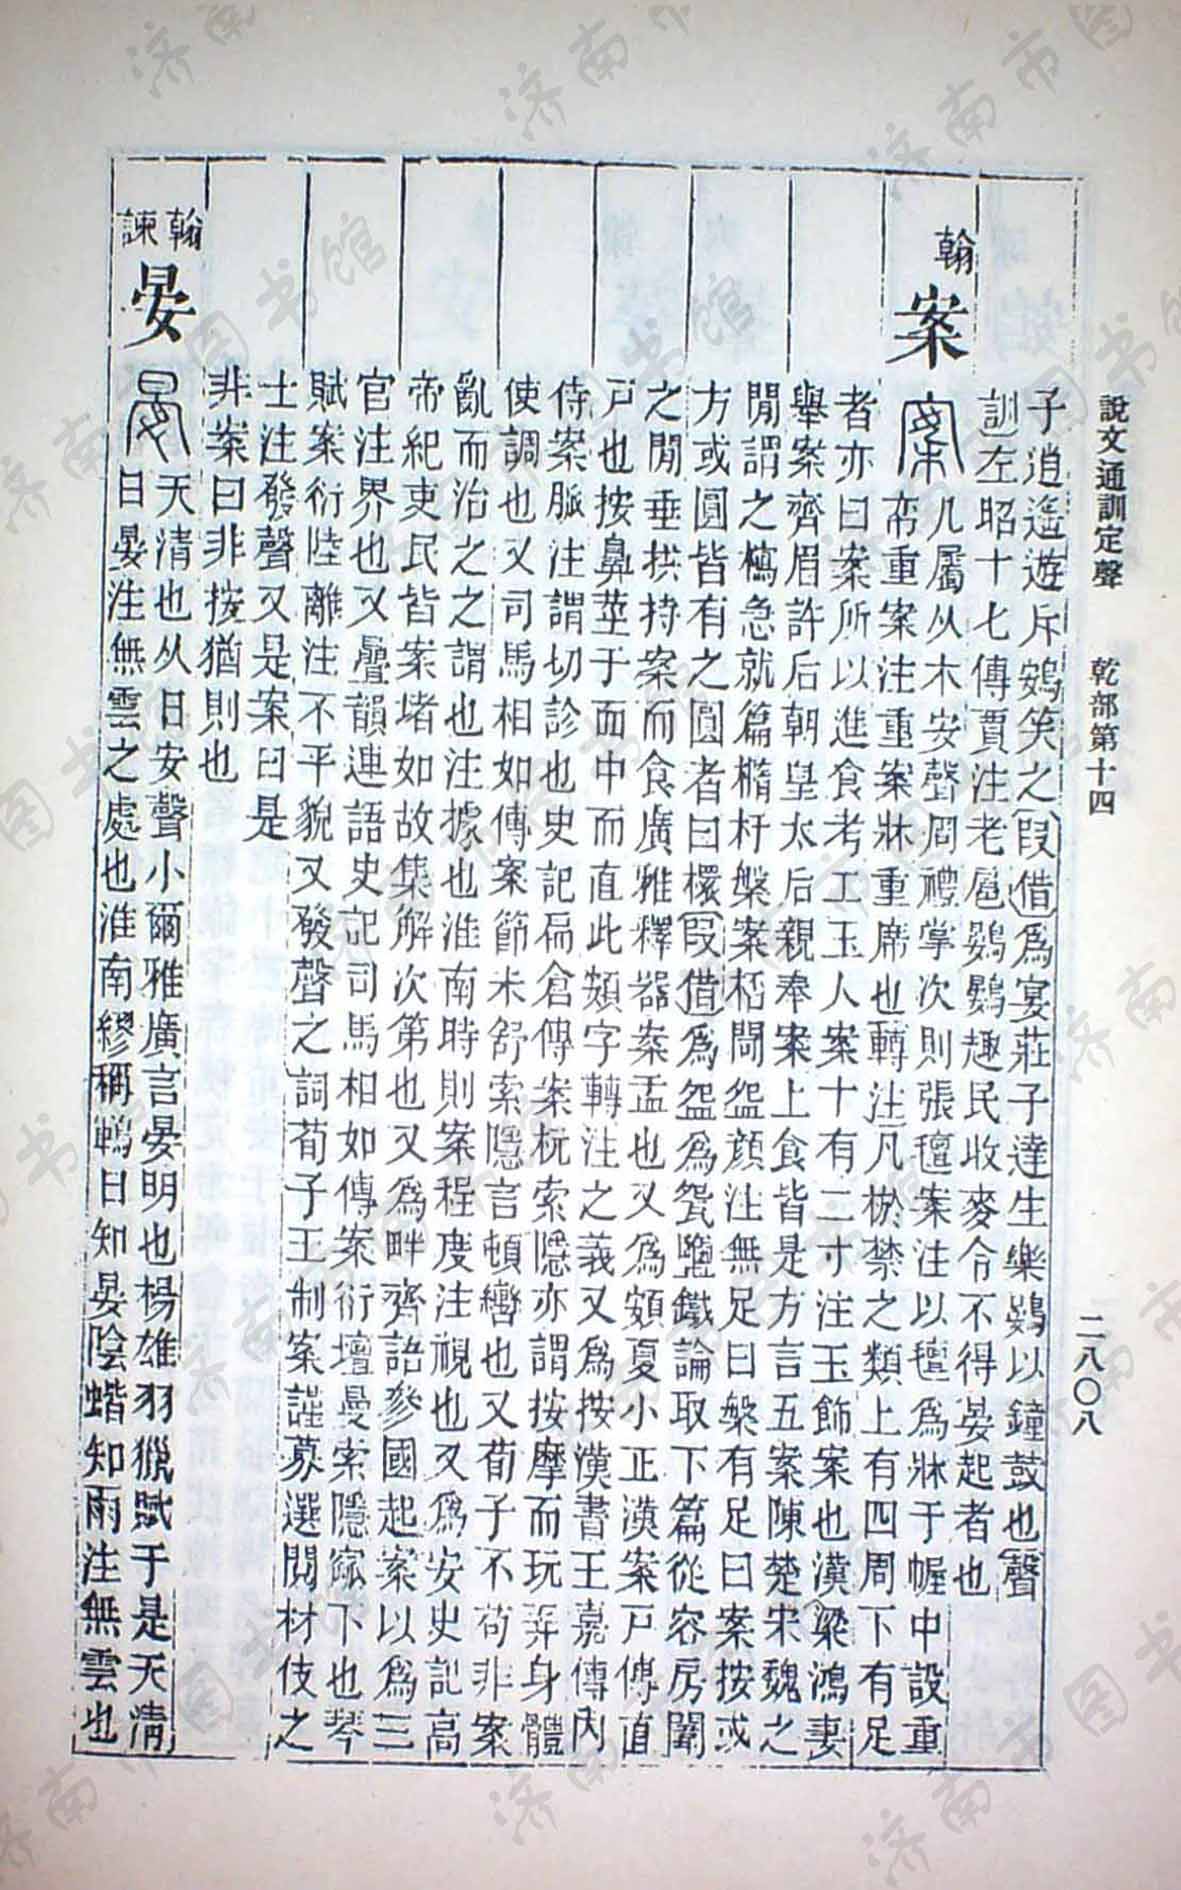 說文通訓定聲 乾部第十四 二八〇八
子逍遙遊斥鴳笑之叚借爲宴莊子達生樂鴳以鐘鼓也聲
訓左昭十七傳賈注老扈鷃鷃趣民收麥令不得晏起者也
翰
案
几屬从木安聲周禮掌次則張氊案注以氊爲牀于幄中設重
帟重案注重案牀重席也轉注凡棜禁之類上有四周下有足
者亦曰案所以進食考工玉人案十有二寸注玉飾案也漢梁鴻妻
舉案齊眉許后朝皇太后親奉案上食皆是方言五案陳楚宋魏之
閒謂之㯕急就篇橢杅槃案桮閜盌顏注無足曰槃有足曰案按或
方或圓皆有之圓者曰檈叚借爲盌爲㼝鹽鐵論取下篇從容房闈
之閒垂拱持案而食廣雅釋器案盂也又爲頞夏小正漢案戶傳直
戶也按鼻莖于面中而直此頞字轉注之義又爲按漢書王嘉傳內
侍案脈注謂切診也史記扁倉傳案杬索隱亦謂按摩而玩弄身體
使調也又司馬相如傳案節未舒索隱言頓轡也又荀子不苟非案
亂而治之之謂也注據也淮南時則案程度注視也又爲安史記高
帝紀吏民皆案堵如故集解次第也又爲畔齊語參國起案以爲三
官注界也又疊韻連語史記司馬相如傳案衍壇曼索隱窳下也琴
賦案衍陸離注不平貌又發聲之詞荀子王制案謹募選閱材伎之
士注發聲又是案曰是
非案曰非按猶則也
翰
諫
晏
天清也从日安聲小爾雅廣言晏明也楊雄羽獵賦于是天清
日晏注無雲之處也淮南繆稱鴨日知晏陰蝔知雨注無雲也